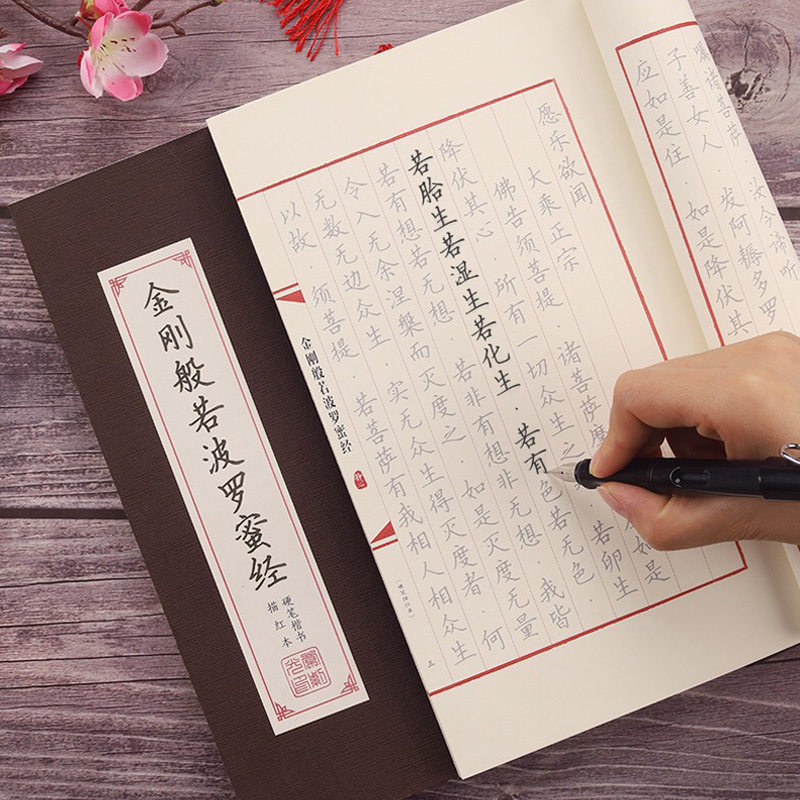 嘱诸菩萨·汝今谛听
子善女人·发阿耨多罗
应如是住·如是降伏其
愿乐欲闻
大乘正宗
佛告须菩提·诸菩萨摩 如是
降伏其心·所有一切众生之 若卵生
若胎生若湿生若化生·若有色若无色
若有想若无想·若非有想非无想·我皆
令入无余涅槃而灭度之·如是灭度无量
无数无边众生·实无众生得灭度者·何
以故·须菩提·若菩萨有我相人相众生
金刚般若波罗蜜经
三
金刚般若波罗蜜经
硬笔楷书
描红本